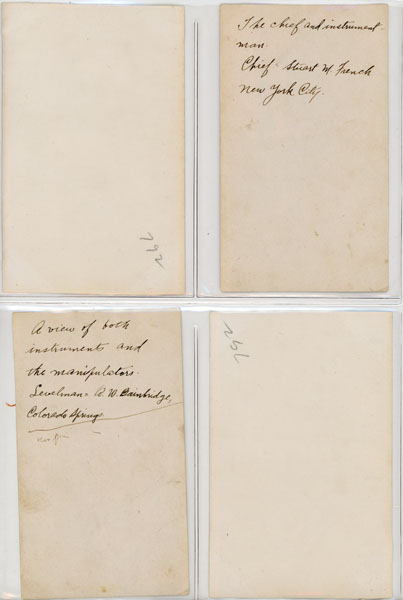 The chief and instrument-
man.
Chief - Stuart M. French
New York City.
292
A view of both
instruments and
the manipulators.
Levelman = A. W. Bainbridge,
Colorado Springs
292